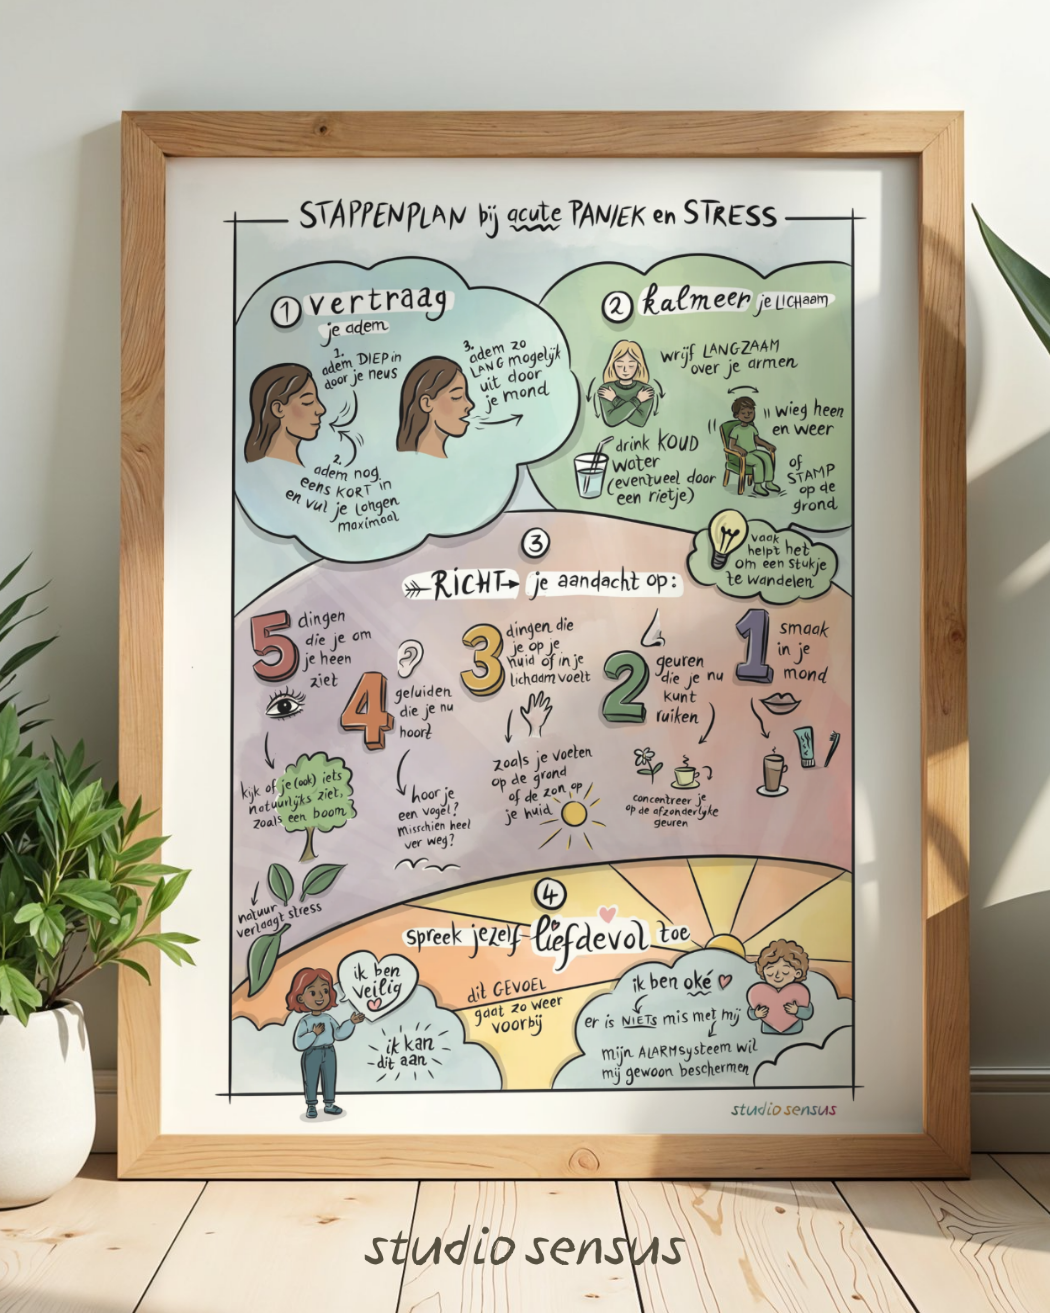 STAPPENPLAN bij acute PANIEK en STRESS
1 vertraag
je adem
1.
adem DIEP in
door je neus
2.
adem nog
eens KORT in
en vul je longen
maximaal
3.
adem zo
LANG mogelijk
uit door
je mond
2 kalmeer je LICHaam
wrijf LANGZAAM
over je armen
wieg heen
en weer
drink KOUD
water
(eventueel door
een rietje)
of
STAMP
op de
grond
vaak
helpt het
om een stukje
te wandelen
3
RICHT je aandacht op:
5 dingen
die je om
je heen
ziet
kijk of je (ook) iets
natuurlijks ziet,
zoals een boom
natuur
verlaagt stress
4 geluiden
die je nu
hoort
hoor je
een vogel?
Misschien heel
ver weg?
3 dingen die
je op je
huid of in je
lichaam voelt
zoals je voeten
op de grond
of de zon op
je huid
2 geuren
die je nu
kunt
ruiken
concentreer je
op de afzonderlijke
geuren
1 smaak
in je
mond
4
spreek jezelf liefdevol toe
ik ben
veilig
ik kan
dit aan
dit GEVOEL
gaat zo weer
voorbij
ik ben oké
er is NIETS mis met mij
mijn ALARMsysteem wil
mij gewoon beschermen
studio sensus
studio sensus